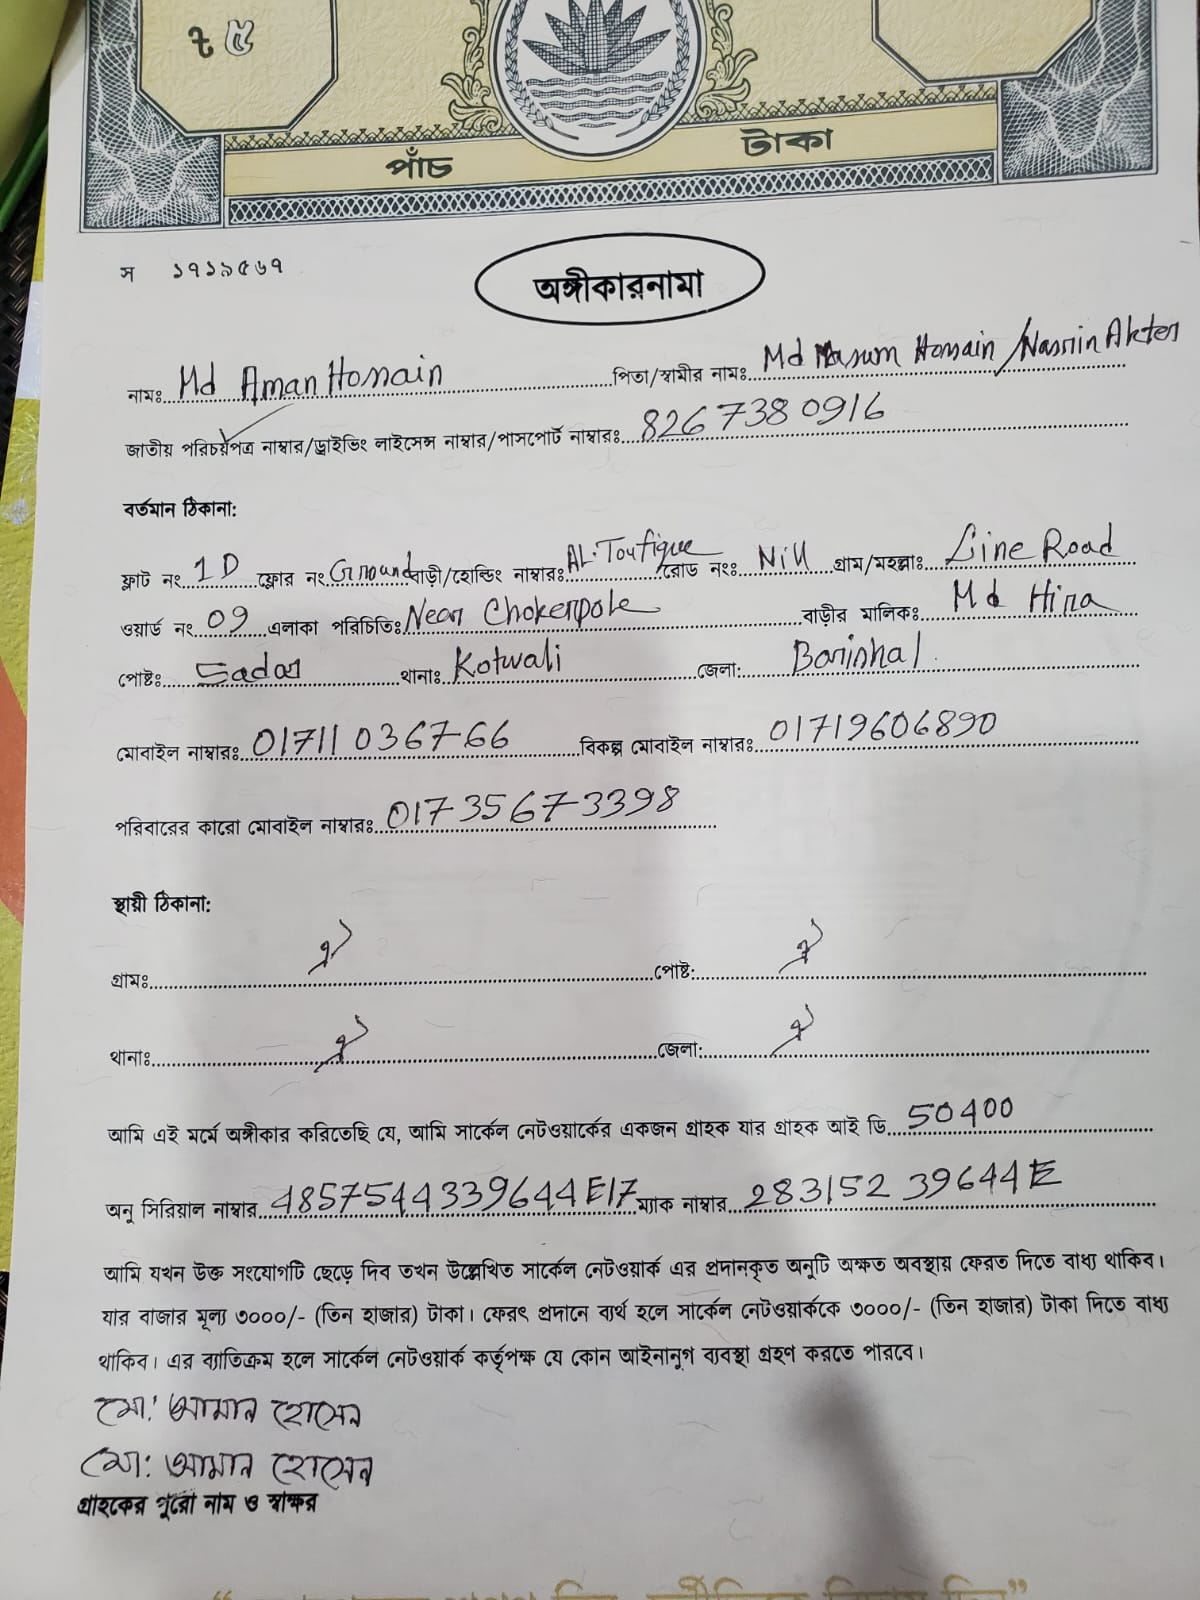 ট ৫
পাঁচ টাকা
স ১৭১৯৫৬৭
অঙ্গীকারনামা
নামঃ Md Aman Hossain পিতা/স্বামীর নামঃ Md Masum Hossain / Nasrin Akter
জাতীয় পরিচয়পত্র নাম্বার/ড্রাইভিং লাইসেন্স নাম্বার/পাসপোর্ট নাম্বারঃ 8267380916
বর্তমান ঠিকানা:
ফ্লাট নং 1D ফ্লোর নং Ground বাড়ী/হোল্ডিং নাম্বারঃ AL-Toufique রোড নংঃ Nill গ্রাম/মহল্লাঃ Line Road
ওয়ার্ড নং 09 এলাকা পরিচিতিঃ Near Chokerpole বাড়ীর মালিকঃ Md Hira
পোষ্টঃ Sadar থানাঃ Kotwali জেলা: Barishal
মোবাইল নাম্বারঃ 01711036766 বিকল্প মোবাইল নাম্বারঃ 01719606890
পরিবারের কারো মোবাইল নাম্বারঃ 01735673398
স্থায়ী ঠিকানা:
গ্রামঃ পোষ্ট:
থানাঃ জেলা:
আমি এই মর্মে অঙ্গীকার করিতেছি যে, আমি সার্কেল নেটওয়ার্কের একজন গ্রাহক যার গ্রাহক আই ডি 50400
অনু সিরিয়াল নাম্বার 4857544339644E17 ম্যাক নাম্বার 28315239644E
আমি যখন উক্ত সংযোগটি ছেড়ে দিব তখন উল্লেখিত সার্কেল নেটওয়ার্ক এর প্রদানকৃত অনুটি অক্ষত অবস্থায় ফেরত দিতে বাধ্য থাকিব।
যার বাজার মূল্য ৩০০০/- (তিন হাজার) টাকা। ফেরৎ প্রদানে ব্যর্থ হলে সার্কেল নেটওয়ার্ককে ৩০০০/- (তিন হাজার) টাকা দিতে বাধ্য
থাকিব। এর ব্যাতিক্রম হলে সার্কেল নেটওয়ার্ক কর্তৃপক্ষ যে কোন আইনানুগ ব্যবস্থা গ্রহণ করতে পারবে।
মো: আমান হোসেন
মো: আমান হোসেন
গ্রাহকের পুরো নাম ও স্বাক্ষর